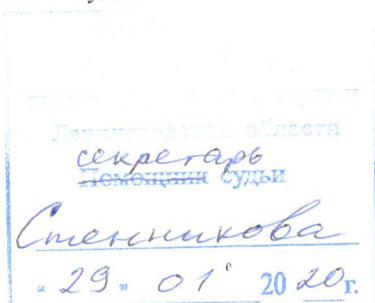 Ленинградской области
секретарь
Помощник судьи
Стенникова
" 29 " 01 2020г.